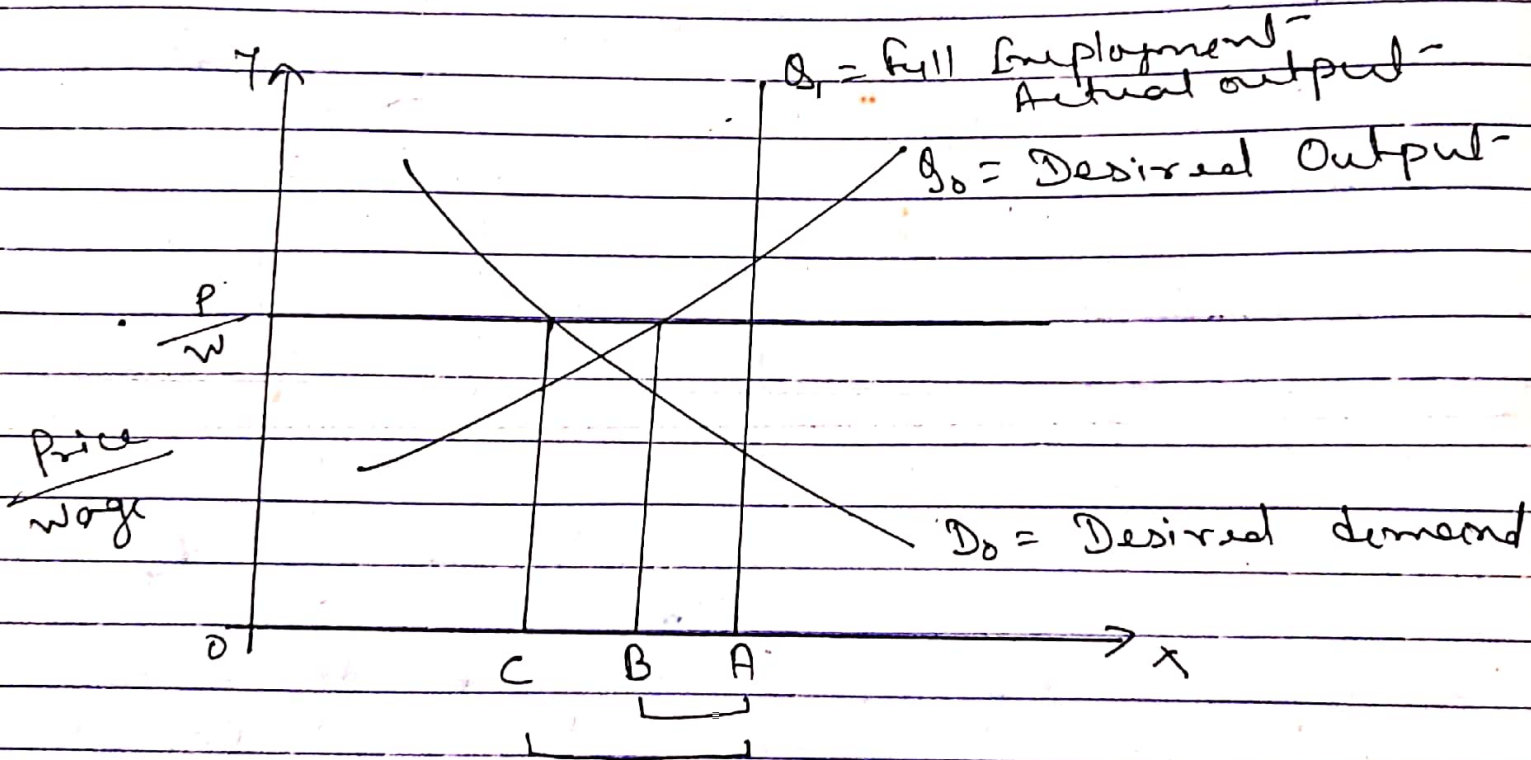 Y
Q₁ = Full Employment
Actual output
Q₀ = Desired Output
P
W
Price
Wage
D₀ = Desired demand
O
C B A
X